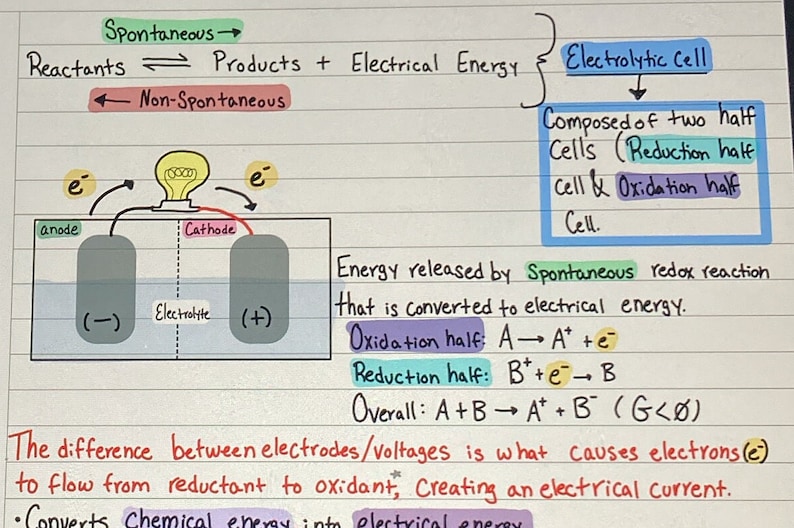 Spontaneous →
Reactants ⇌ Products + Electrical Energy
← Non-Spontaneous
Electrolytic Cell
Composed of two half
Cells (Reduction half
cell & Oxidation half
Cell.
e⁻ e⁻
anode Cathode
(-) Electrolyte (+)
Energy released by Spontaneous redox reaction
that is converted to electrical energy.
Oxidation half: A → A⁺ + e⁻
Reduction half: B⁺ + e⁻ → B
Overall: A + B → A⁺ + B⁻ (G<0)
The difference between electrodes/voltages is what causes electrons (e⁻)
to flow from reductant to oxidant*, creating an electrical current.
• Converts Chemical energy into electrical energy